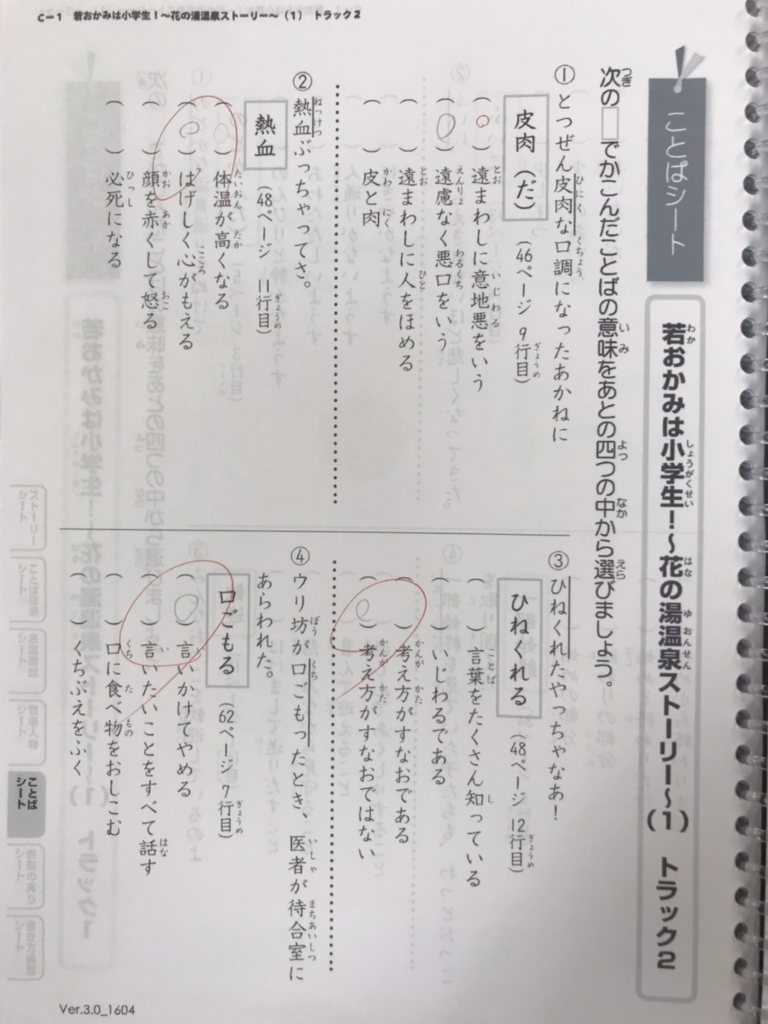 C－1 若おかみは小学生！～花の湯温泉ストーリー～（1） トラック2
ことばシート
若おかみは小学生！～花の湯温泉ストーリー～（1） トラック2
次の□でかこんだことばの意味をあとの四つの中から選びましょう。
①とつぜん皮肉な口調になったあかねに
皮肉（だ）（46ページ 9行目）
（○）遠まわしに意地悪をいう
（○）遠慮なく悪口をいう
（ ）遠まわしに人をほめる
（ ）皮と肉
②熱血ぶっちゃってさ。
熱血（48ページ 11行目）
（ ）体温が高くなる
（○）はげしく心がもえる
（ ）顔を赤くして怒る
（ ）必死になる
③ひねくれたやっちゃなあ！
ひねくれる（48ページ 12行目）
（ ）言葉をたくさん知っている
（ ）いじわるである
（ ）考え方がすなおである
（○）考え方がすなおではない
④ウリ坊が口ごもったとき、医者が待合室に
あらわれた。
口ごもる（62ページ 7行目）
（○）言いかけてやめる
（ ）言いたいことをすべて話す
（ ）口に食べ物をおしこむ
（ ）くちぶえをふく
ストーリー
シート
ことば
シート
Ver.3.0_1604